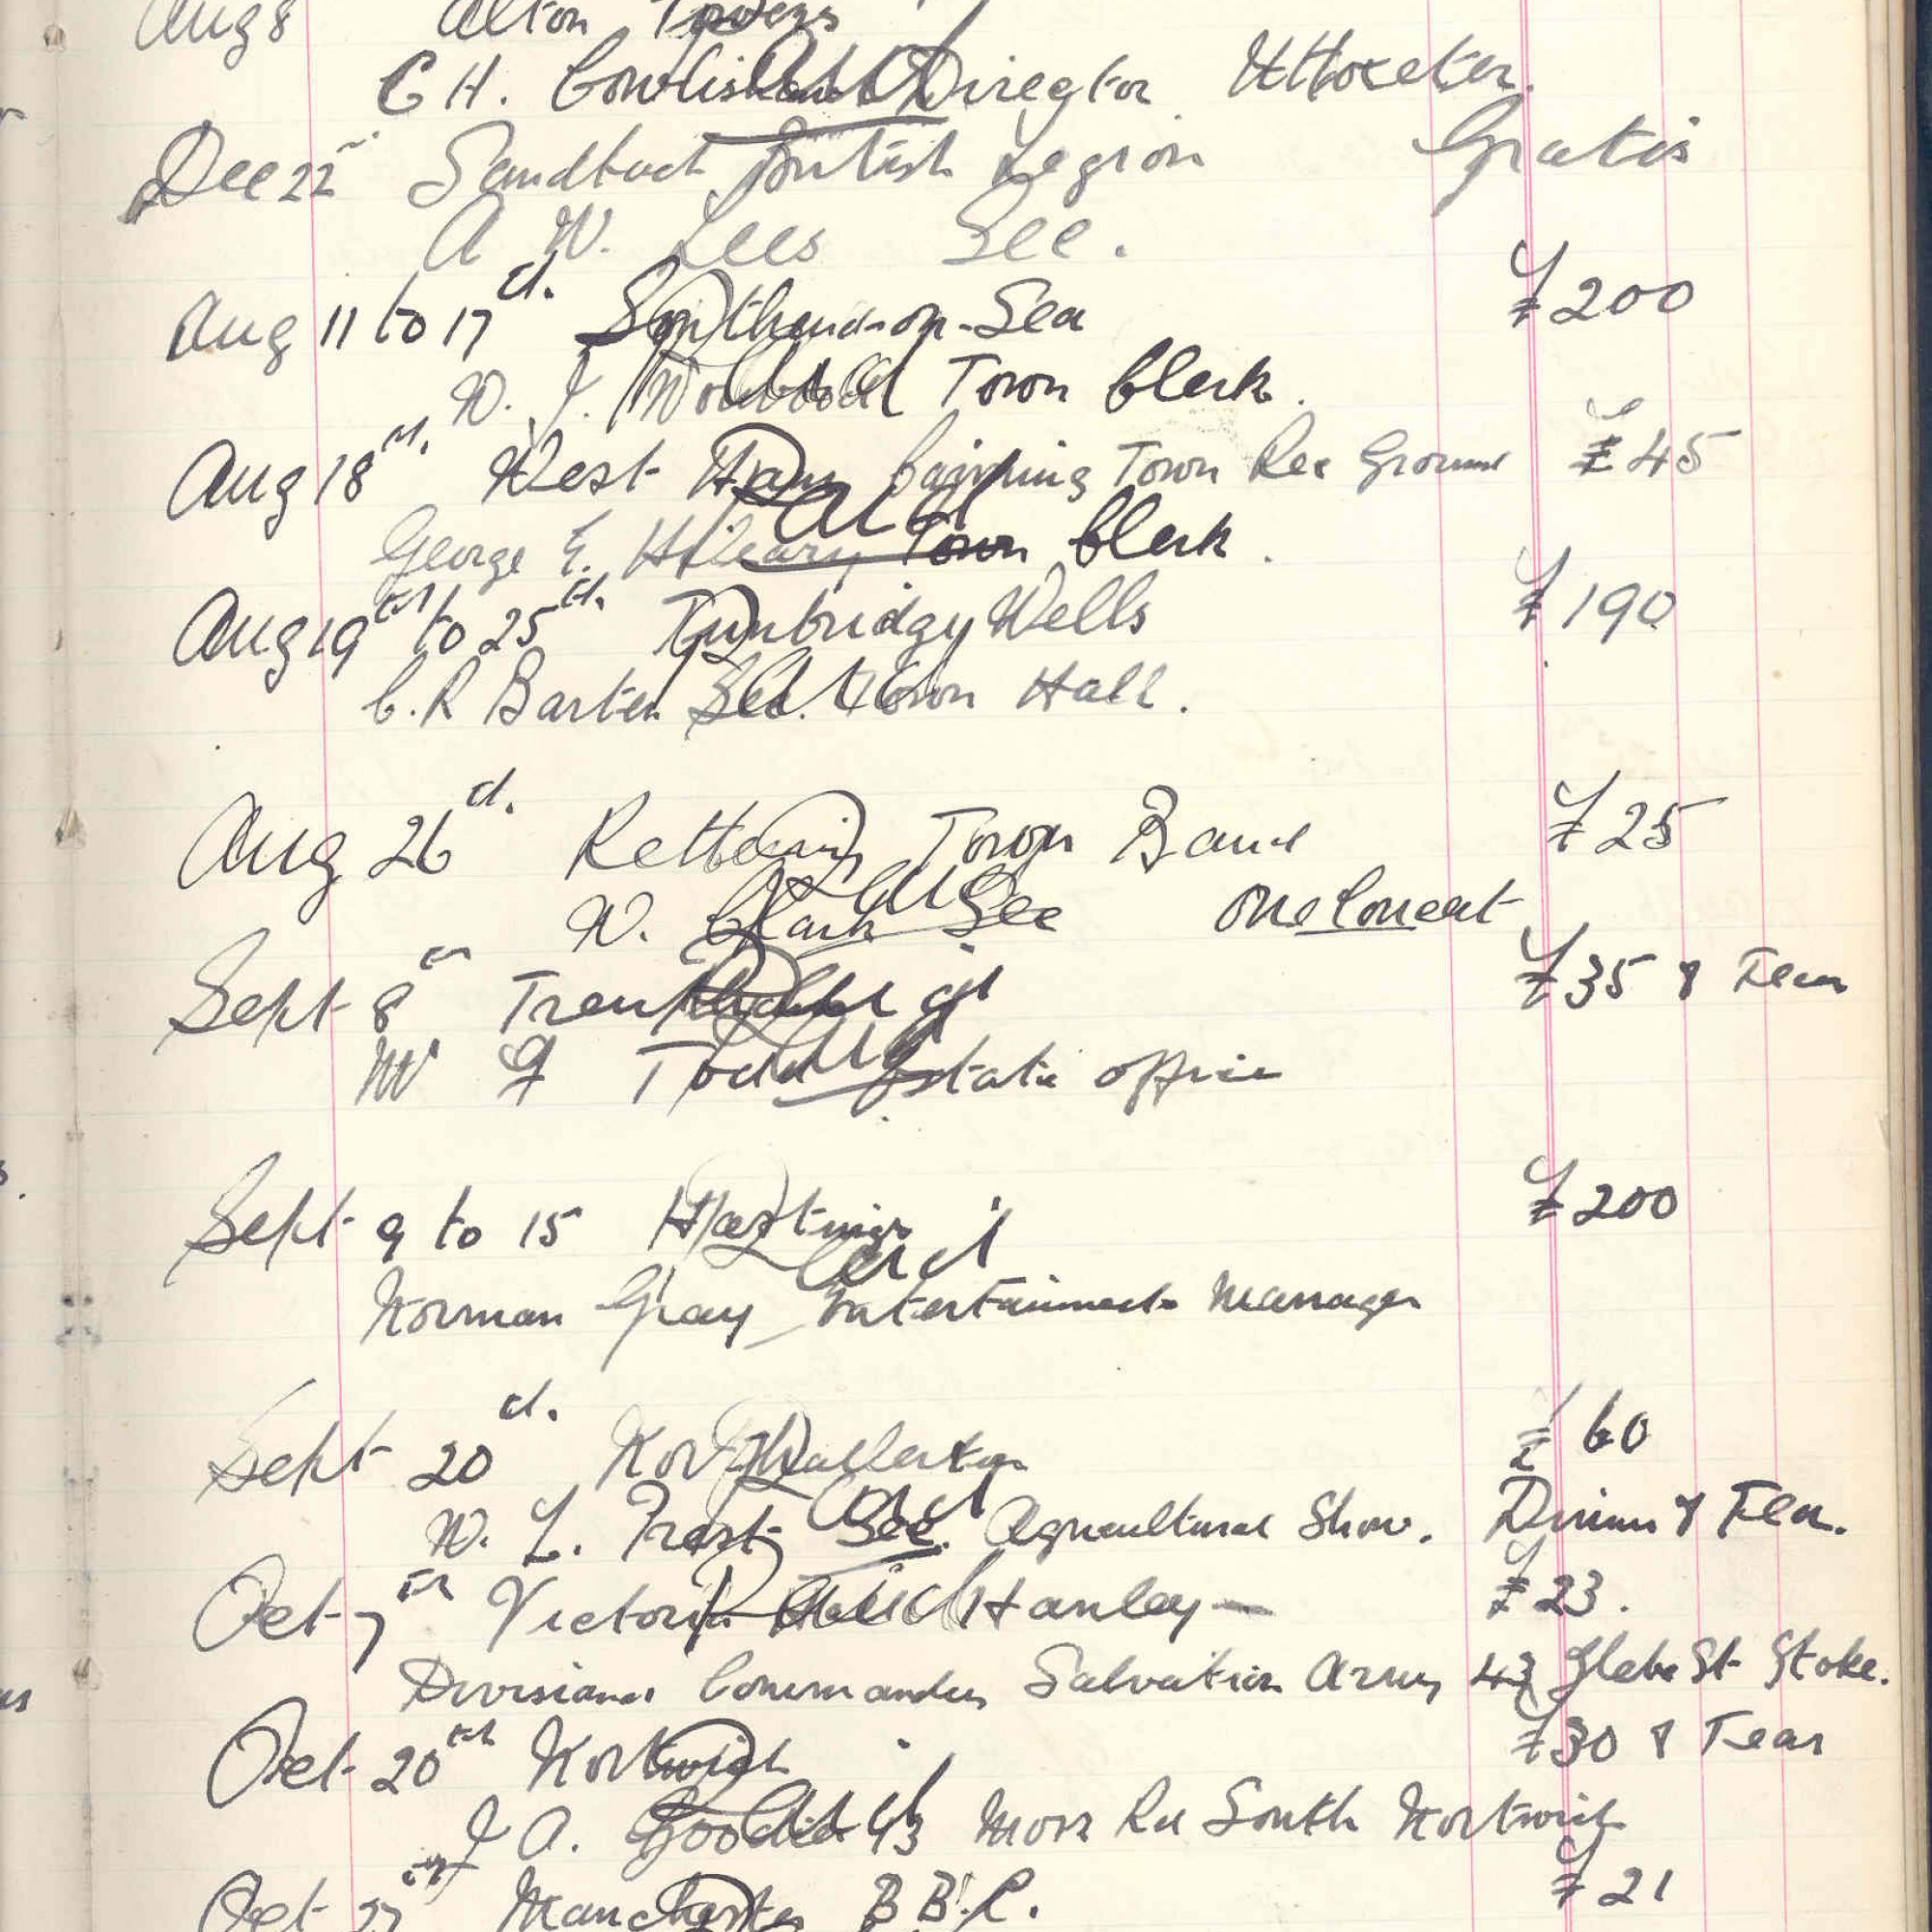 Aug 8 Alton Towers
C H. Director Uttoxeter.
Dec 22 Sandbach British Legion Gratis
A W. Lees Sec.
Aug 11 to 17th. Southend-on-Sea £200
W. J. Town Clerk.
Aug 18th. West Ham Canning Town Rec Ground £45
George E. Hilleary Town Clerk.
Aug 19th to 25th. Tunbridge Wells £190
C. R Barter Sec. Town Hall.
Aug 26th. Kettering Town Band £25
W. Clark Sec One Concert
Sept 8th Trentham £35 & Tea
Todd Estate Office
Sept 9 to 15 Hastings £200
Norman Gray Entertainments Manager
Sept 20th. Northallerton £60
W. L. Prest Sec. Agricultural Show. Dinner & Tea.
Oct 7th Victoria Hall Hanley — £23.
Divisional Commander Salvation Army 43 Glebe St Stoke.
Oct 20th Nortwich £30 & Teas
J A. 43 Moss Rd South Nortwich
Oct 27th Manchester B B.C. £21
Paid